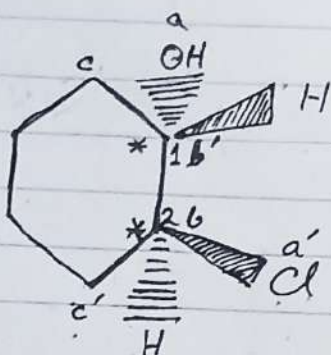 a
c OH
H
* 1 b'
* 2 b
a'
Cl
c'
H